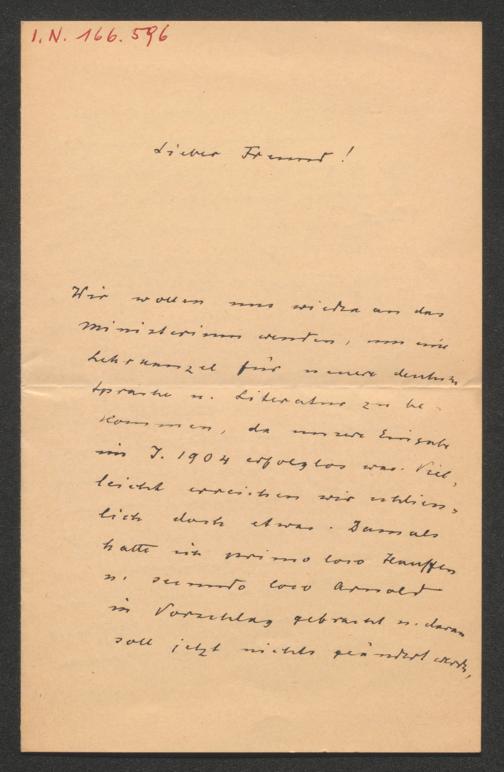 I.N. 166.596
Lieber Freund!
Wir wollen uns wieder an das
Ministerium wenden, um eine
Lehrkanzel für neuere deutsche
Sprache u. Literatur zu be-
kommen, da unsere Eingabe
im J. 1904 erfolglos war. Viel-
leicht erreichen wir schliess-
lich doch etwas. Damals
hatte ich primo loco Hauffen
u. secundo loco Arnold
in Vorschlag gebracht u. daran
soll jetzt nichts geändert werden,